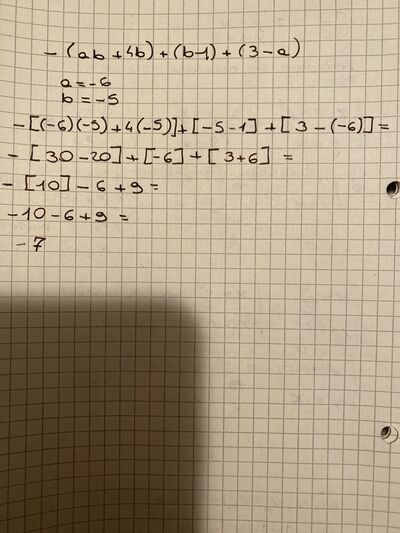 - (ab + 4b) + (b-1) + (3-a)
a = -6
b = -5
- [(-6)(-5) + 4(-5)] + [-5-1] + [3-(-6)] =
- [30-20] + [-6] + [3+6] =
- [10] - 6 + 9 =
-10-6+9 =
-7